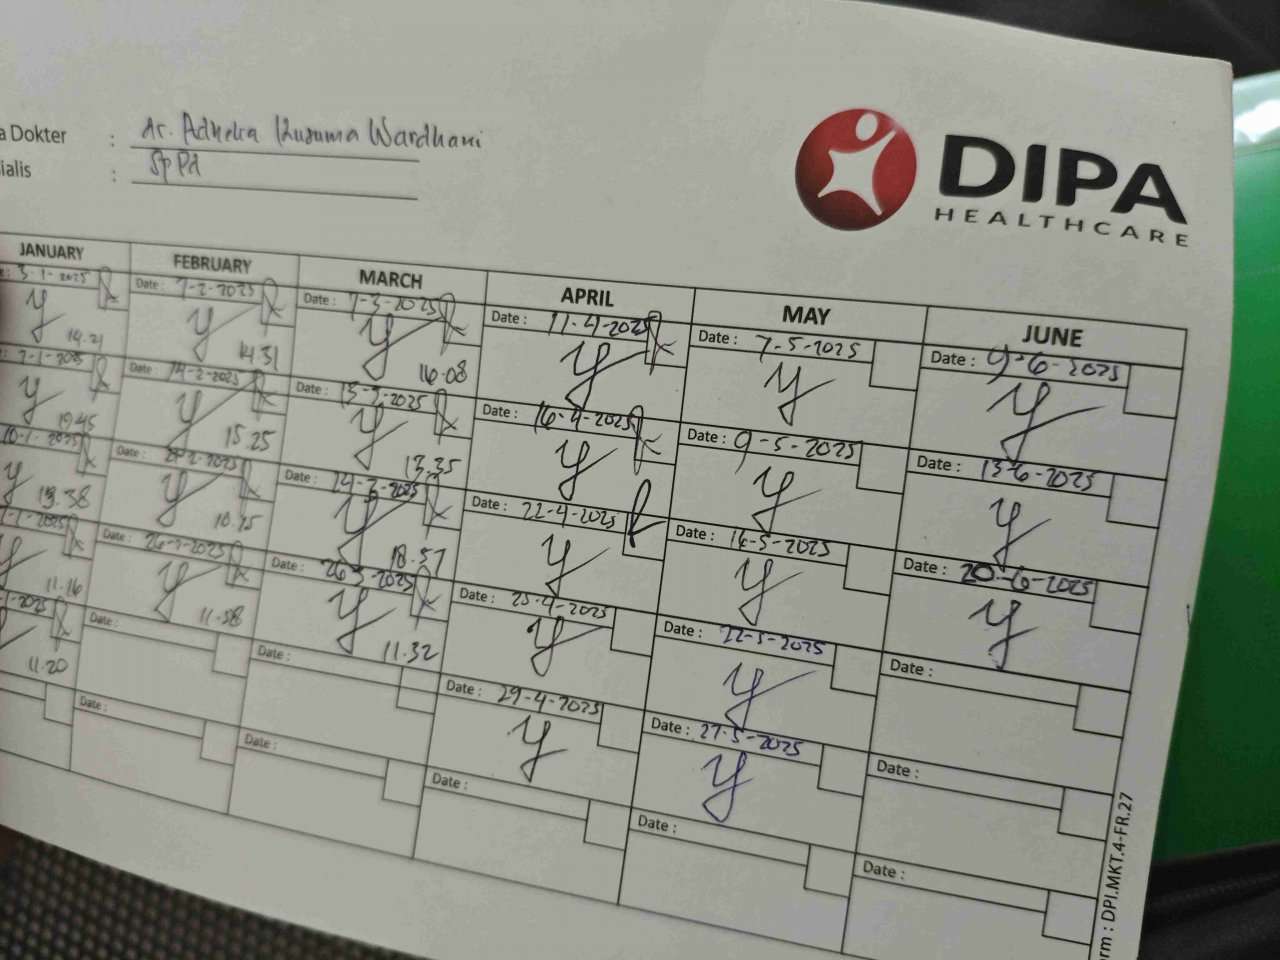 a Dokter : dr. Adhelia Kusuma Wardhani
ialis : SpPd
DIPA
HEALTHCARE
JANUARY FEBRUARY MARCH APRIL MAY JUNE
3-1-2025 Date : 7-2-2025 Date : 7-3-2025 Date : 11-4-2025 Date : 7-5-2025 Date : 9-6-2025
14.31 16.08
-1-2025 Date : 14-2-2025 Date : 13-3-2025 Date : 16-4-2025 Date : 9-5-2025 Date : 13-6-2025
19.45 15.25 13.35
10-1-2025 Date : 2-2025 Date : -2025 Date : 22-4-2025 Date : 16-5-2025 Date : 20-6-2025
18.57
-2025 Date : 26-2-2025 Date : 26-3-2025 Date : 25-4-2025 Date : 22-5-2025 Date :
11.16 11.58 11.32
-2025 Date : Date : Date : 29-4-2025 Date : 27-5-2025 Date :
11.20
Date : Date : Date : Date : Date :
orm : DPI.MKT.4-FR.27